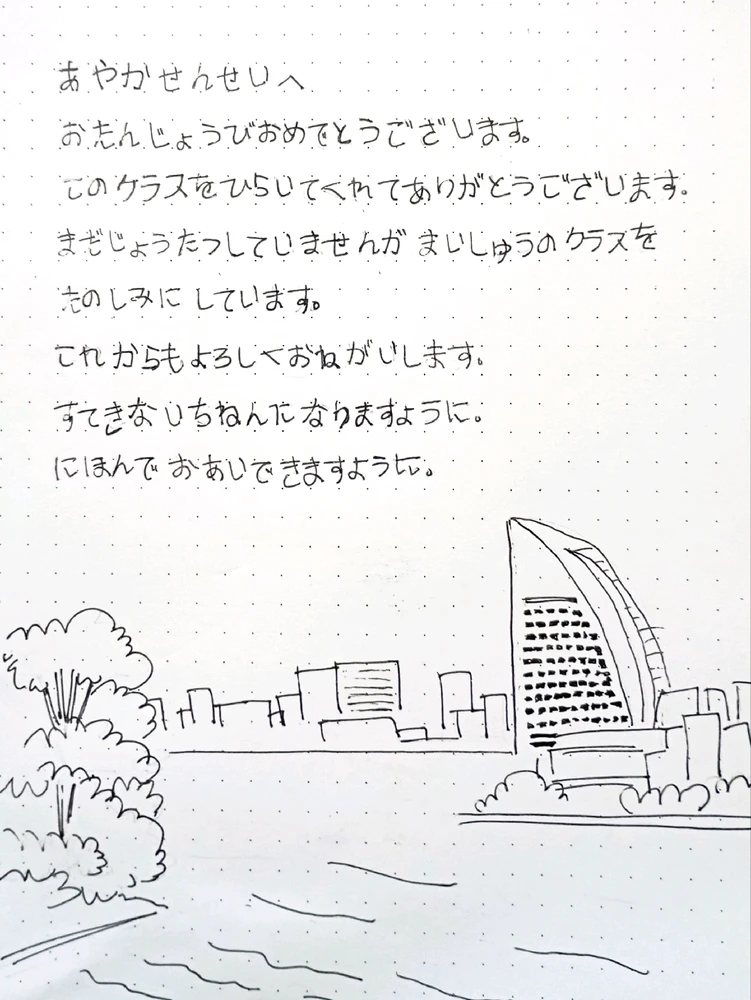 あやかせんせいへ
おたんじょうびおめでとうございます。
このクラスをひらいてくれてありがとうございます。
まだじょうたつしていませんが まいしゅうのクラスを
たのしみにしています。
これからもよろしくおねがいします。
すてきないちねんになりますように。
にほんでおあいできますように。